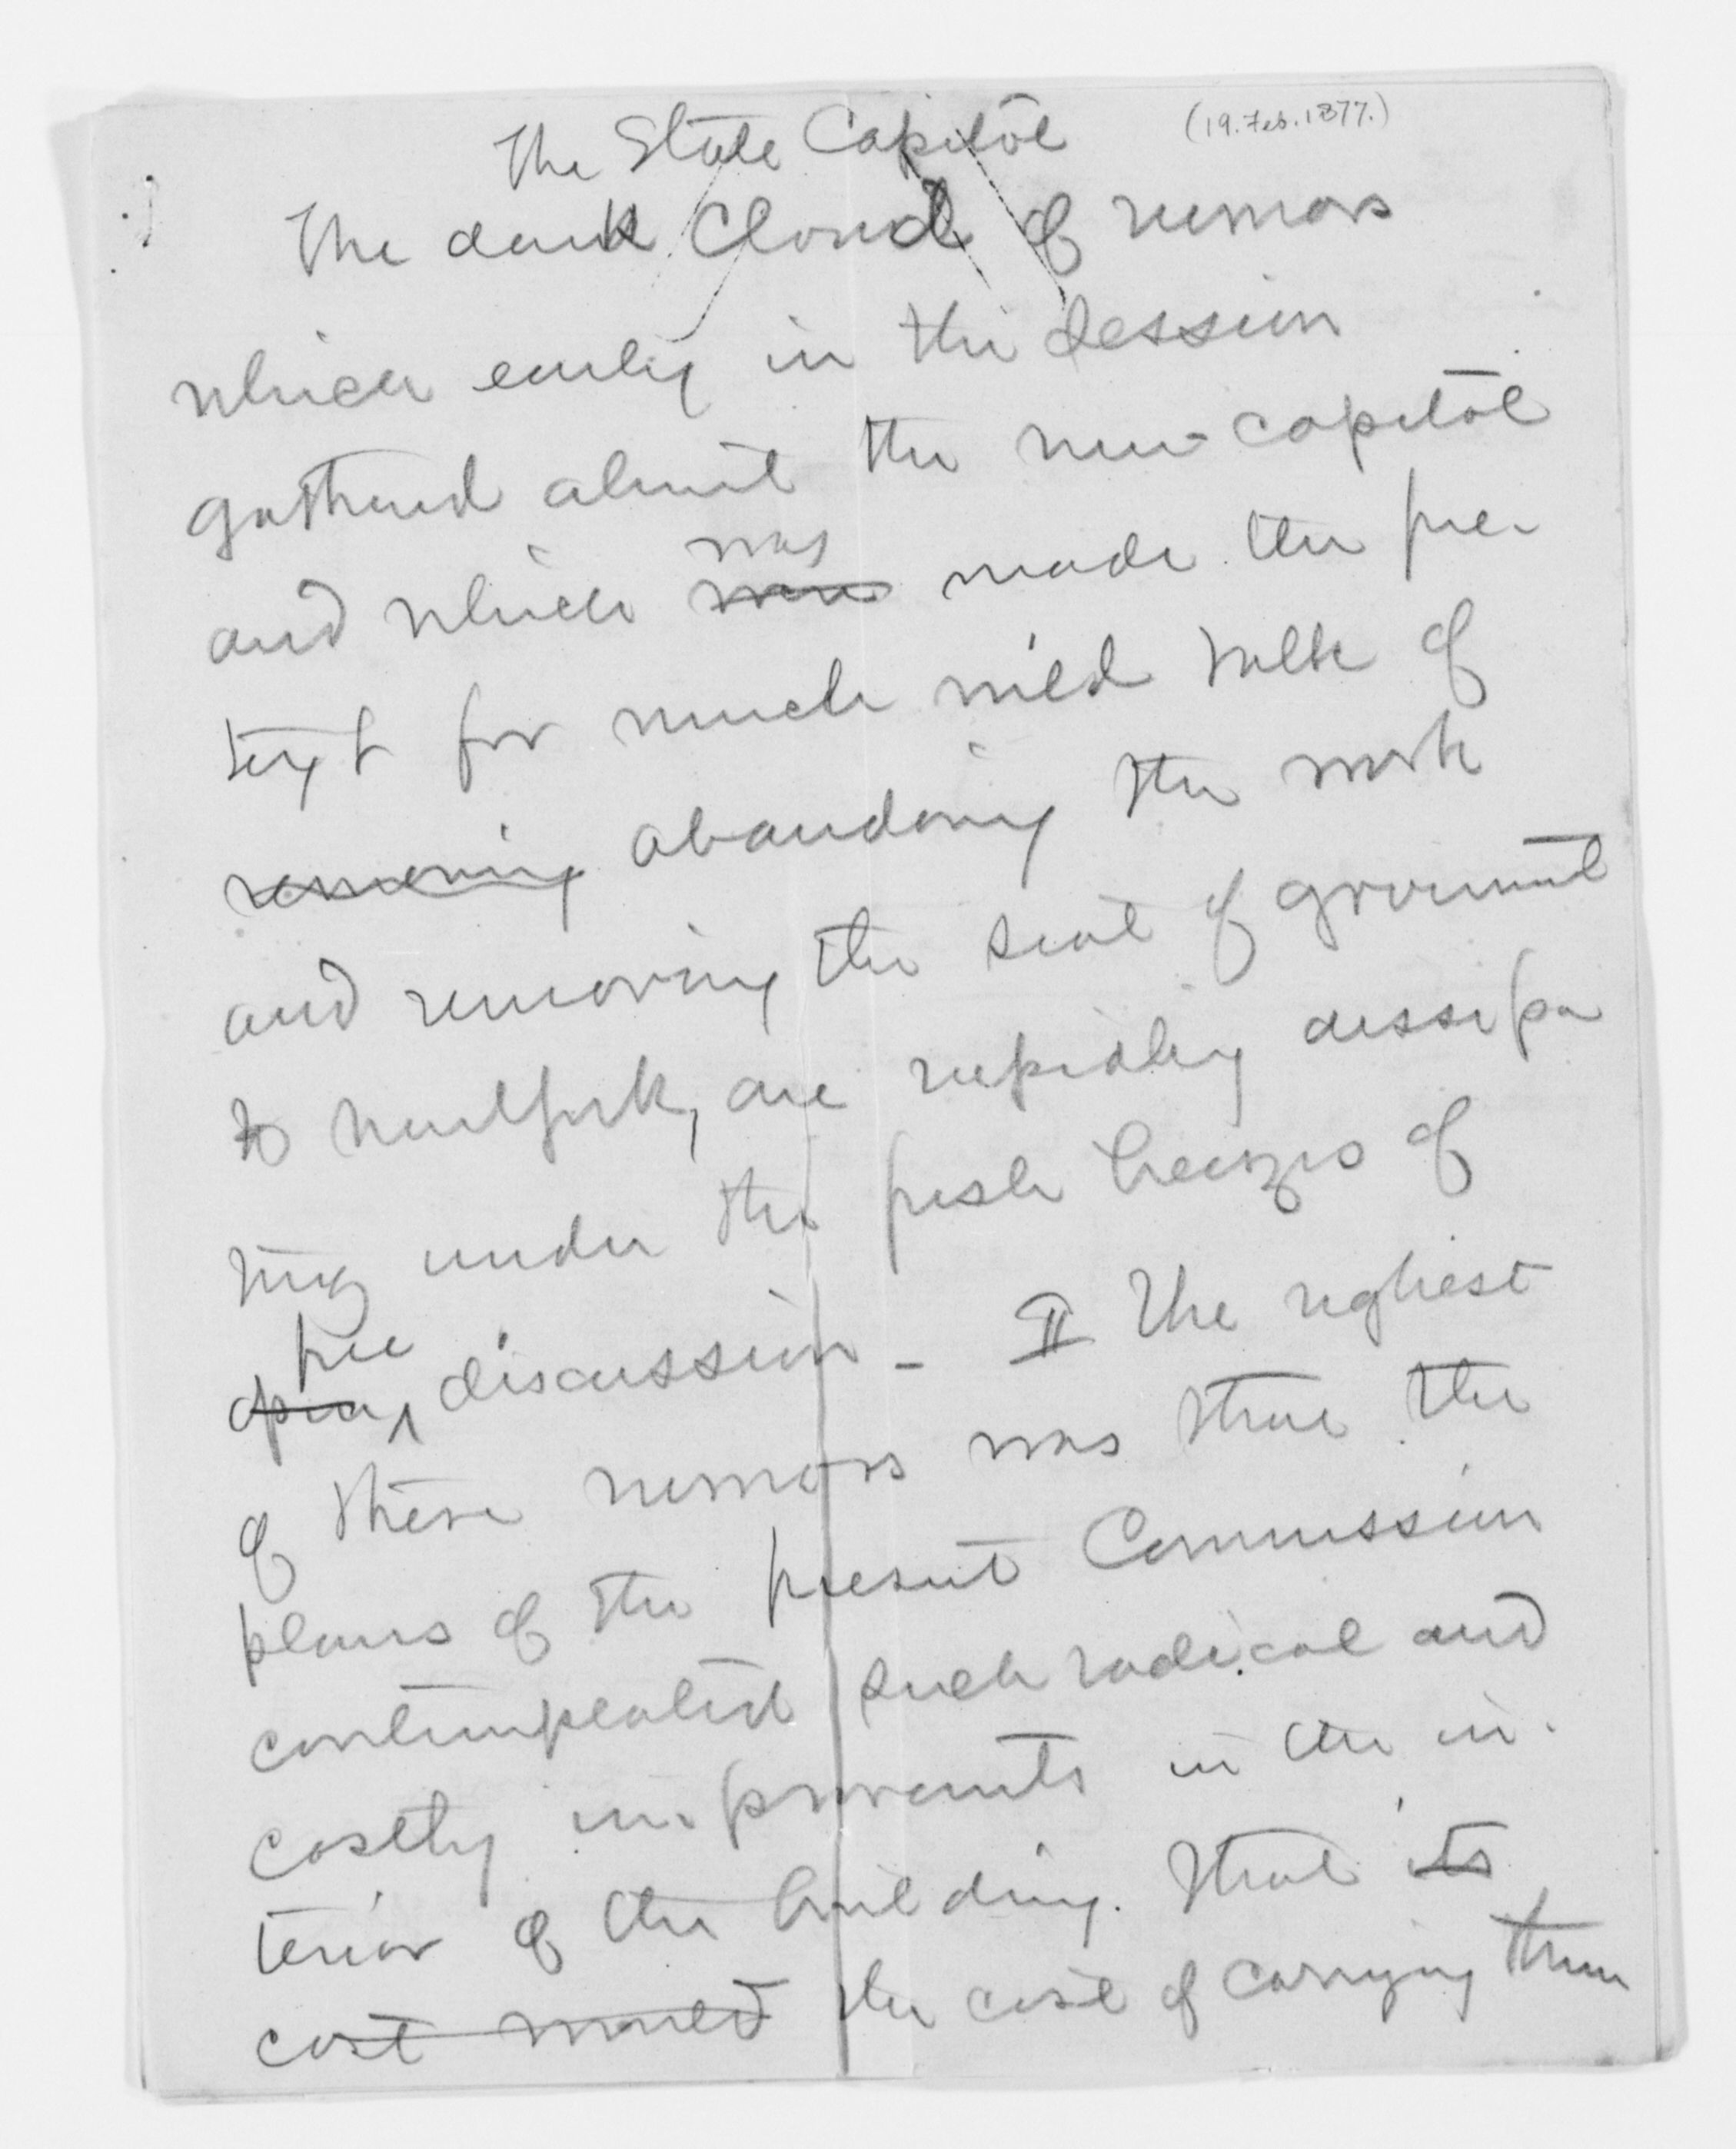 The State Capitol (19. Feb. 1877.)
The dark Cloud of rumors
which early in the session
gathered about the new capitol
was
and which were made the pre-
text for much wild talk of
removing abandoning the work
and removing the seat of government
to New York, are rapidly dissipa
ting under the fresh breezes of
free
open discussion - II The ugliest
of these rumors was that the
plans of the present Commission
contemplated such radical and
costly improvements in the in-
terior of the building. that its
cost would the cost of carrying them